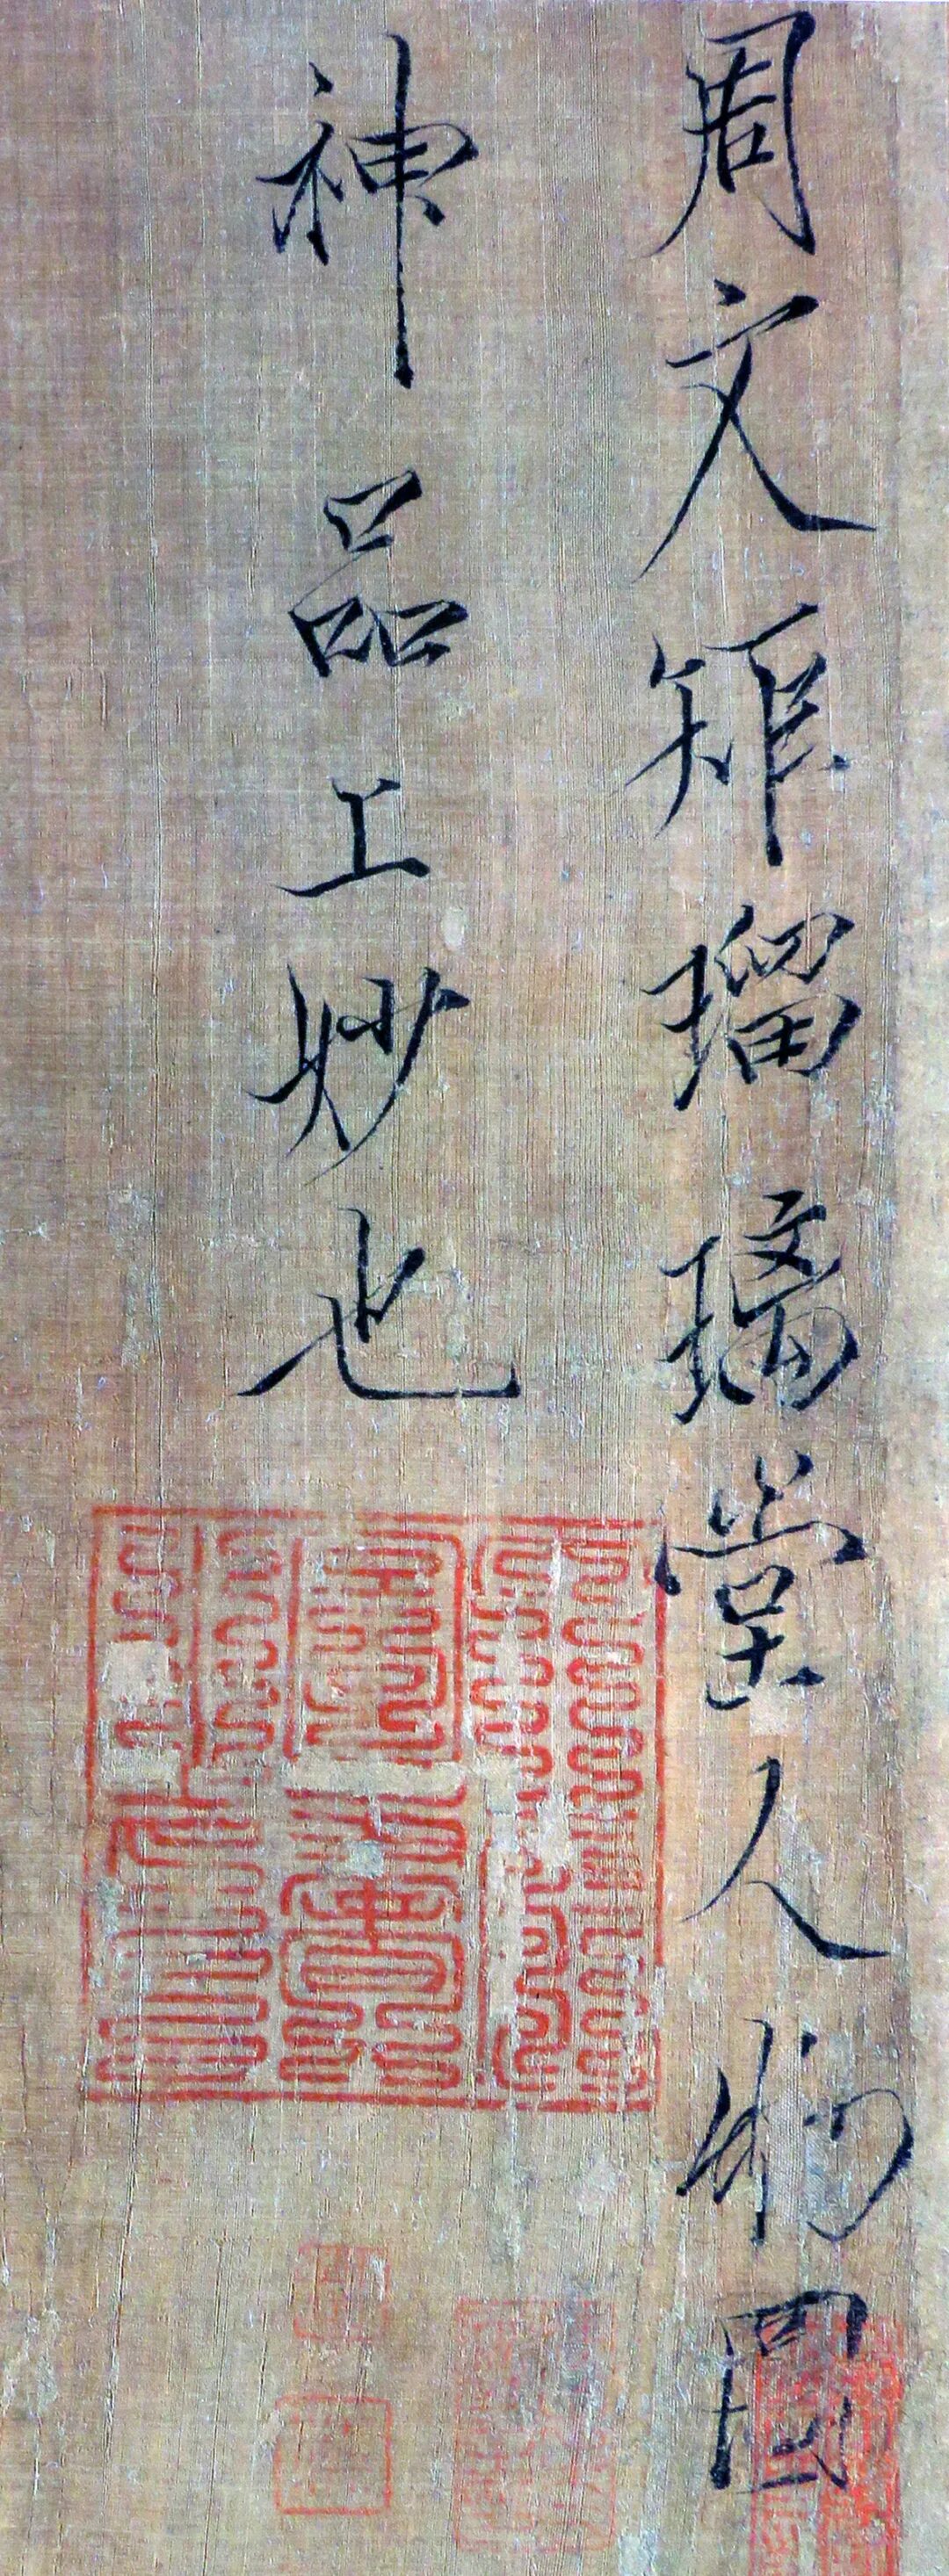 周文矩瑠璃堂人物圖
神品工妙也